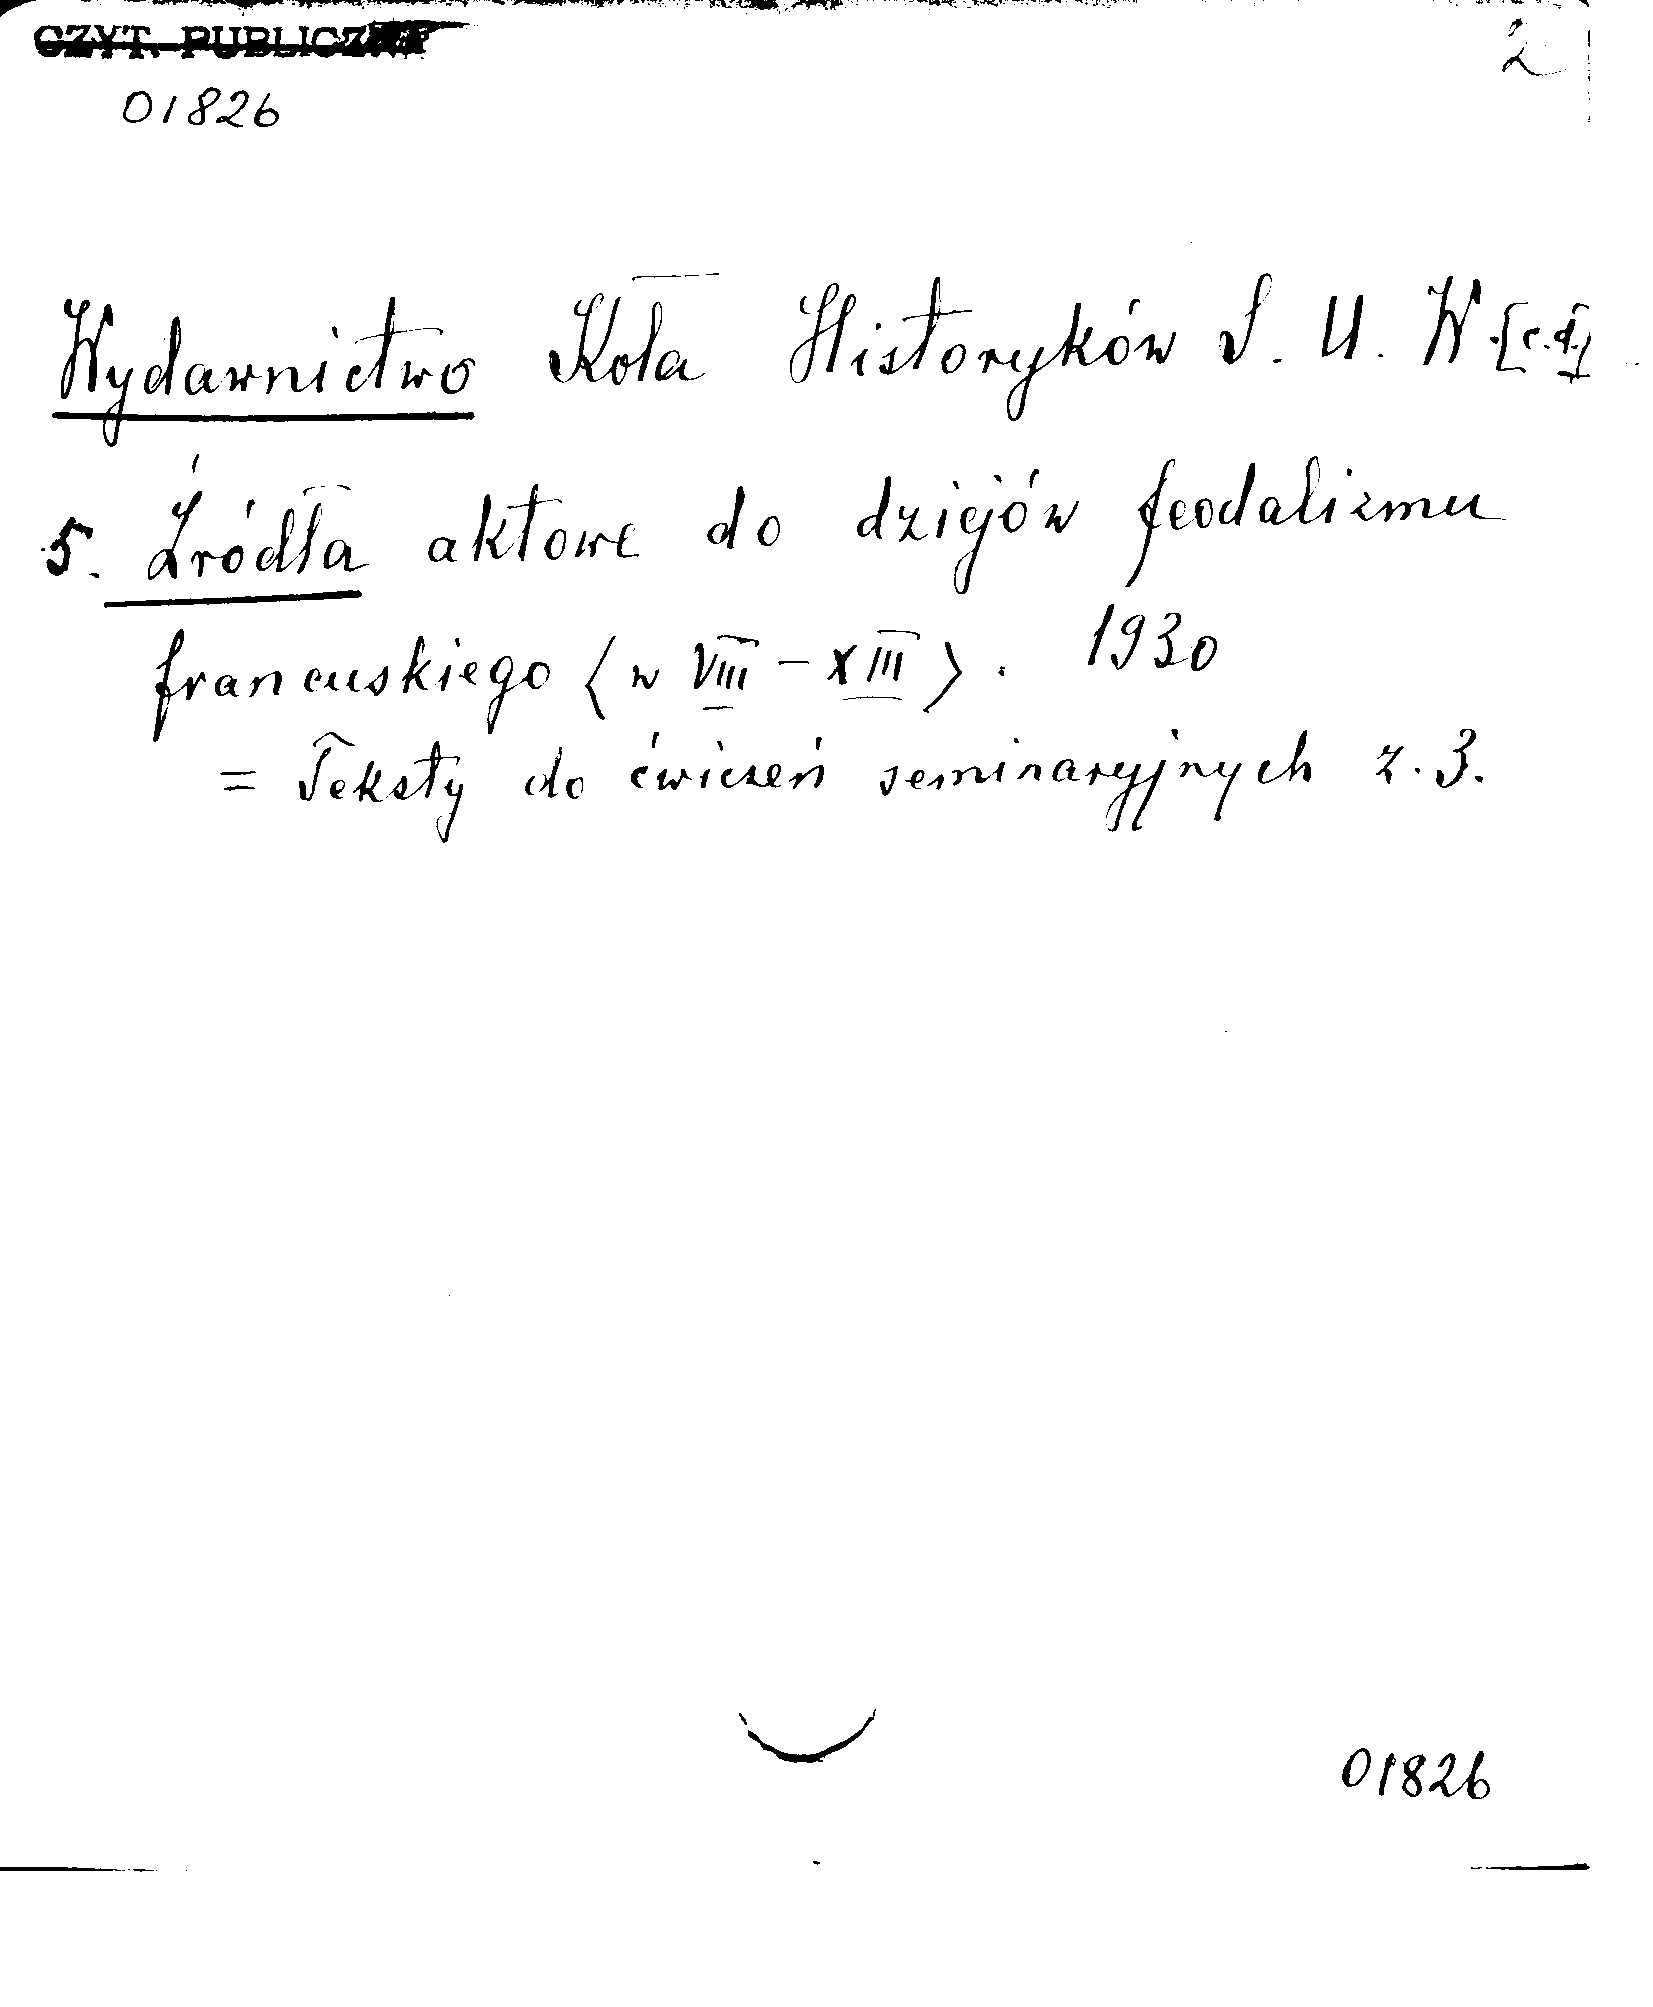 CZYT. PUBLICZNA
2
01826
Wydawnictwo Koła Historyków S. U. W. [c.d.]
5. Źródła aktowe do dziejów feodalizmu
francuskiego (w VIII – XIII). 1930
= Teksty do ćwiczeń seminaryjnych z. 3.
01826